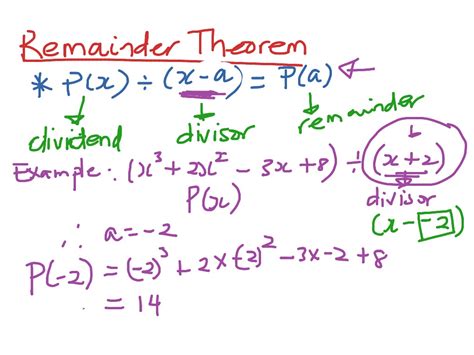 Remainder Theorem
* P(x) ÷ (x-a) = P(a) ⇐
dividend divisor remainder
Example: (x³ + 2x² - 3x + 8) ÷ (x+2)
P(x) divisor
(x - -2)
∴ a = -2
P(-2) = (-2)³ + 2x(-2)² - 3x-2 + 8
= 14